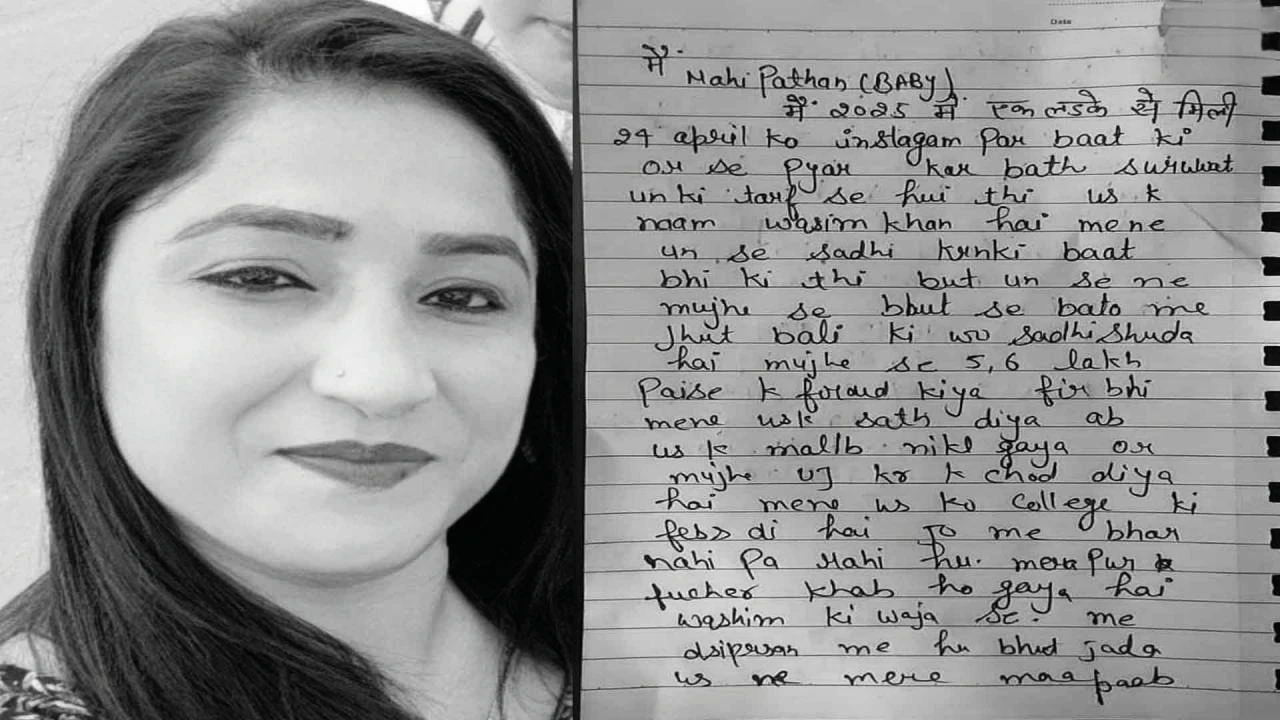 Date
मैं
Mahi Pathan (BABY)
मैं 2025 में एक लडके से मिली
24 april ko instagam par baat ki
or se pyar kar bath suruwat
un ki tarf se hui thi us k
naam wasim khan hai mene
un se sadhi krnki baat
bhi ki thi but un se ne
mujhe se bhut se bato me
Jhut bali ki wo sadhi shuda
hai mujhe se 5,6 lakh
Paise k foraud kiya fir bhi
mene usk sath diya ab
us k matlb nikl gaya or
mujhe UJ kr k chod diya
hai mene us ko College ki
fess di hai Jo me bhar
nahi pa rahi hu. mera pur k
fucher khab ho gaya hai
washim ki waja se. me
dsiprsan me hu bhut jada
us ne mere maa paab